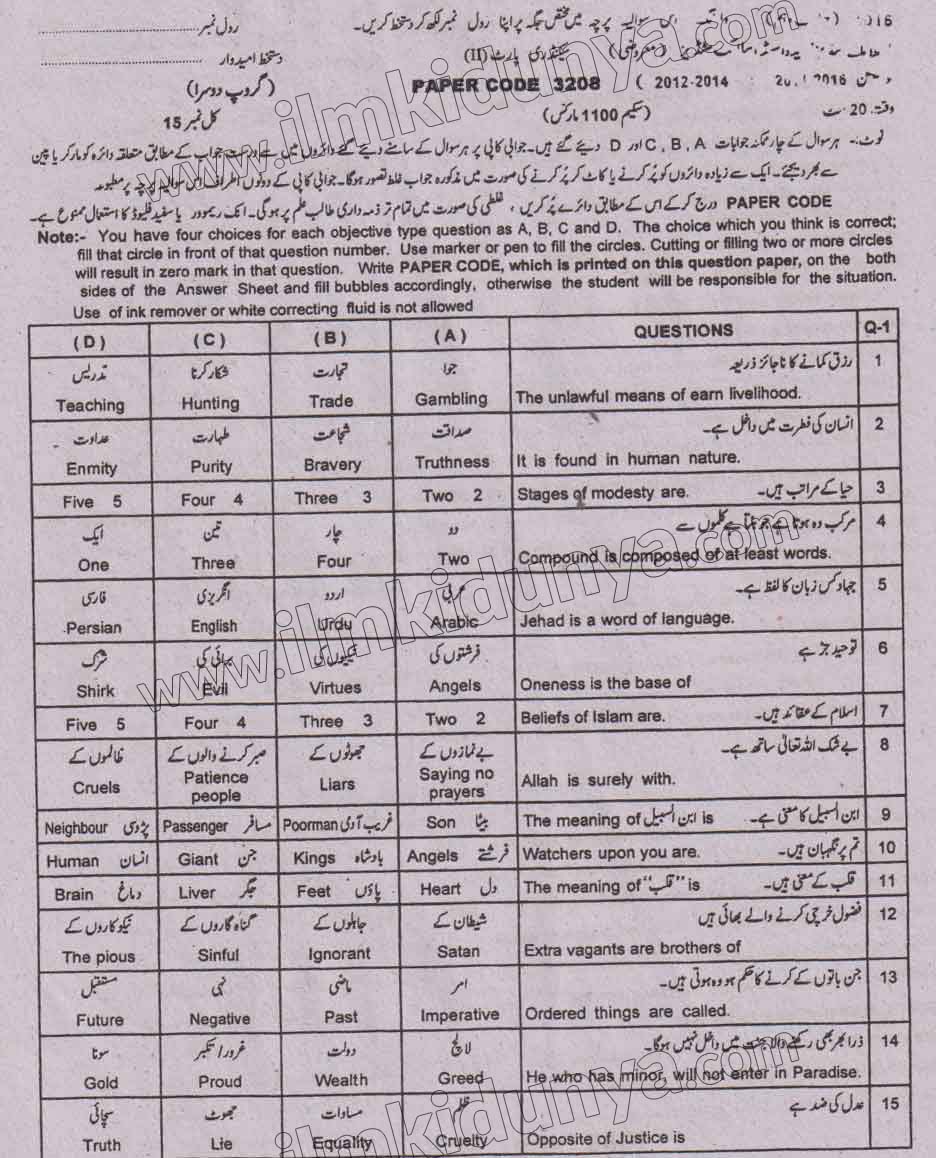 رول نمبر
پرچہ میں مختص جگہ پر اپنا رول نمبر لکھ کر دستخط کریں۔
دستخط امیدوار
سیکنڈری پارٹ (II)
(گروپ دوسرا) PAPER CODE 3208 ( 2012-2014
کل نمبر 15 (سکیم 1100 مارکس) وقت: 20
نوٹ:۔ ہر سوال کے چار ممکنہ جوابات C, B, A اور D دیے گئے ہیں۔ جوابی کاپی پر ہر سوال کے سامنے دیے گئے دائروں میں سے درست جواب کے مطابق متعلقہ دائرہ کو مارکر یا پین
سے بھر دیجئے۔ ایک سے زیادہ دائروں کو پُر کرنے یا کاٹ کر پُر کرنے کی صورت میں مذکورہ جواب غلط تصور ہوگا۔ جوابی کاپی کے دونوں اطراف اس سوالیہ پرچہ پر مطبوعہ
PAPER CODE درج کرکے اس کے مطابق دائرے پُر کریں، غلطی کی صورت میں تمام تر ذمہ داری طالب علم پر ہوگی۔ انک ریموور یا سفید فلیوڈ کا استعمال ممنوع ہے۔
Note:- You have four choices for each objective type question as A, B, C and D. The choice which you think is correct;
fill that circle in front of that question number. Use marker or pen to fill the circles. Cutting or filling two or more circles
will result in zero mark in that question. Write PAPER CODE, which is printed on this question paper, on the both
sides of the Answer Sheet and fill bubbles accordingly, otherwise the student will be responsible for the situation.
Use of ink remover or white correcting fluid is not allowed
(D) (C) (B) (A) QUESTIONS Q-1
تدریس شکار کرنا تجارت جوا رزق کمانے کا ناجائز ذریعہ 1
Teaching Hunting Trade Gambling The unlawful means of earn livelihood.
عداوت طہارت شجاعت صداقت انسان کی فطرت میں داخل ہے۔ 2
Enmity Purity Bravery Truthness It is found in human nature.
Five 5 Four 4 Three 3 Two 2 Stages of modesty are. حیا کے مراتب ہیں۔ 3
ایک تین چار دو مرکب وہ ہوتا ہے جو بنتا ہے کلموں سے 4
One Three Four Two Compound is composed of at least words.
فارسی انگریزی اردو عربی جہاد کس زبان کا لفظ ہے۔ 5
Persian English Urdu Arabic Jehad is a word of language.
شرک برائی کی نیکیوں کی فرشتوں کی توحید جڑ ہے 6
Shirk Evil Virtues Angels Oneness is the base of
Five 5 Four 4 Three 3 Two 2 Beliefs of Islam are. اسلام کے عقائد ہیں۔ 7
ظالموں کے صبر کرنے والوں کے جھوٹوں کے بے نمازوں کے بے شک اللہ تعالیٰ ساتھ ہے۔ 8
Cruels Patience people Liars Saying no prayers Allah is surely with.
Neighbour پڑوسی Passenger مسافر Poorman غریب آدمی Son بیٹا The meaning of ابن السبیل is ابن السبیل کا معنی ہے۔ 9
Human انسان Giant جن Kings بادشاہ Angels فرشتے Watchers upon you are. تم پر نگہبان ہیں۔ 10
Brain دماغ Liver جگر Feet پاؤں Heart دل The meaning of "قلب" is قلب کے معنی ہیں۔ 11
نیکوکاروں کے گناہ گاروں کے جاہلوں کے شیطان کے فضول خرچی کرنے والے بھائی ہیں 12
The pious Sinful Ignorant Satan Extra vagants are brothers of
مستقبل نہی ماضی امر جن باتوں کے کرنے کا حکم ہو وہ ہوتی ہیں۔ 13
Future Negative Past Imperative Ordered things are called.
سونا غرور/تکبر دولت لالچ ذرا بھر بھی رکھنے والا جنت میں داخل نہیں ہوگا۔ 14
Gold Proud Wealth Greed He who has minor, will not enter in Paradise.
سچائی جھوٹ مساوات ظلم عدل کی ضد ہے 15
Truth Lie Equality Cruelty Opposite of Justice is
www.ilmkidunya.com
www.ilmkidunya.com
www.ilmkidunya.com